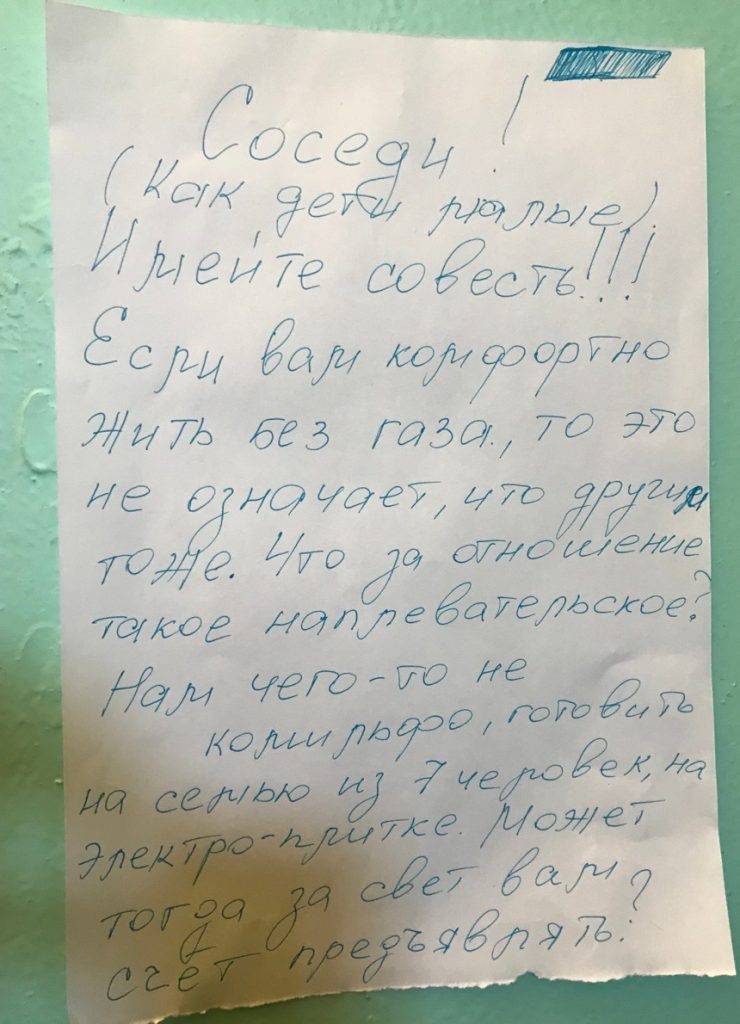 Соседи!
(Как дети малые).
Имейте совесть!!!
Если вам комфортно
жить без газа, то это
не означает, что другим
тоже. Что за отношение
такое наплевательское?
Нам чего-то не
комильфо, готовить
на семью из 7 человек, на
электро-плитке. Может
тогда за свет вам
счёт предъявлять?